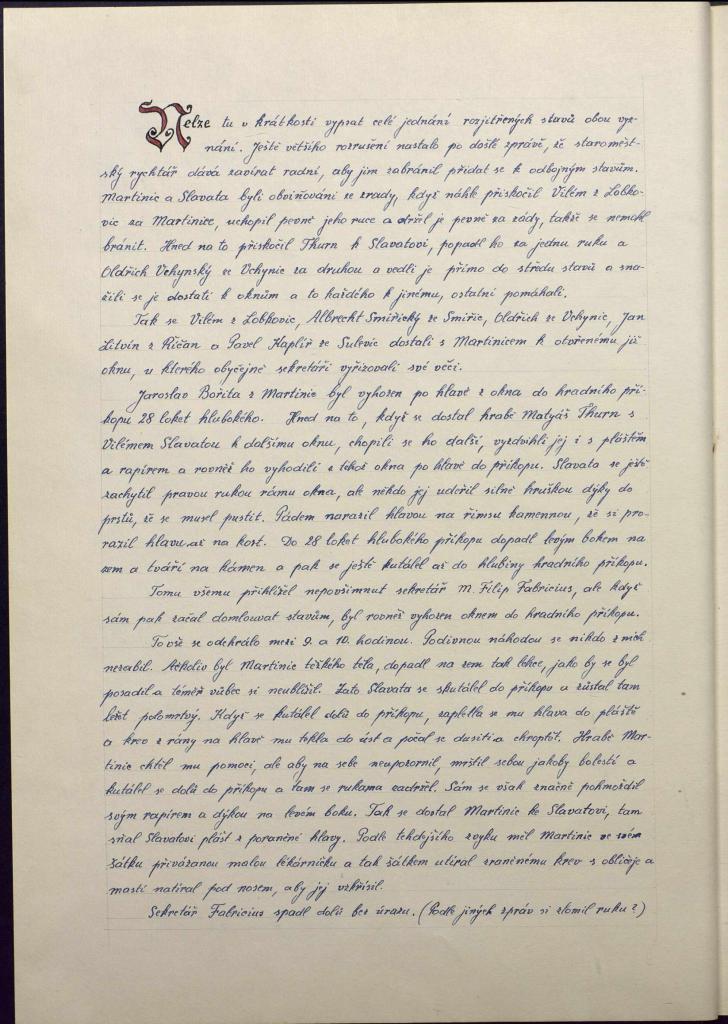 Nelze tu v krátkosti vypsat celé jednání rozjitřených stavů obou vyz-
nání. Ještě většího rozrušení nastalo po došlé zprávě, že staroměst-
ský rychtář dává zavírat radní, aby jim zabránil přidat se k odbojným stavům.
Martinic a Slavata byli obviňováni ze zrady, když náhle přiskočil Vilém z Lobko-
vic za Martinice, uchopil pevně jeho ruce a držel je pevně za zády, takže se nemohl
bránit. Hned na to přiskočil Thurn k Slavatovi, popadl ho za jednu ruku a
Oldřich Vchynský ze Vchynic za druhou a vedli je přímo do středu stavů a sna-
žili se je dostati k oknům a to každého k jinému, ostatní pomáhali.
Tak se Vilém z Lobkovic, Albrecht Smiřický ze Smiřic, Oldřich ze Vchynic, Jan
Litvín z Říčan a Pavel Kaplíř ze Sulevic dostali s Martinicem k otevřenému již
oknu, u kterého obyčejně sekretáři vyřizovali své věci.
Jaroslav Bořita z Martinic byl vyhozen po hlavě z okna do hradního pří-
kopu 28 loket hlubokého. Hned na to, když se dostal hrabě Matyáš Thurn s
Vilémem Slavatou k dalšímu oknu, chopili se ho další, vyzdvihli jej i s pláštěm
a rapírem a rovněž ho vyhodili z téhož okna po hlavě do příkopu. Slavata se ještě
zachytil pravou rukou rámu okna, ale někdo jej udeřil silně hruškou dýky do
prstů, že se musel pustit. Pádem narazil hlavou na římsu kamennou, že si pro-
razil hlavu až na kost. Do 28 loket hlubokého příkopu dopadl levým bokem na
zem a tváří na kámen a pak se ještě kutálel až do hlubiny hradního příkopu.
Tomu všemu přihlížel nepovšimnut sekretář M. Filip Fabricius, ale když
sám pak začal domlouvat stavům, byl rovněž vyhozen oknem do hradního příkopu.
To vše se odehrálo mezi 9. a 10. hodinou. Podivnou náhodou se nikdo z nich
nezabil. Ačkoliv byl Martinic těžkého těla, dopadl na zem tak lehce, jako by se byl
posadil a téměř vůbec si neublížil. Zato Slavata se skutálel do příkopu a zůstal tam
ležet polomrtvý. Když se kutálel dolů do příkopu, zapletla se mu hlava do pláště
a krev z rány na hlavě mu tekla do úst a počal se dusiti a chroptit. Hrabě Mar-
tinic chtěl mu pomoci, ale aby na sebe neupozornil, mrštil sebou jakoby bolestí a
kutálel se dolů do příkopu a tam se rukama zadržel. Sám se však značně pohmoždil
svým rapírem a dýkou na levém boku. Tak se dostal Martinic ke Slavatovi, tam
sňal Slavatovi plášť z poraněné hlavy. Podle tehdejšího zvyku měl Martinic ve svém
šátku přivázanou malou lékárničku a tak šátkem utíral zraněnému krev s obličeje a
mastí natíral pod nosem, aby jej vzkřísil.
Sekretář Fabricius spadl dolů bez úrazu. (Podle jiných zpráv si zlomil ruku?)